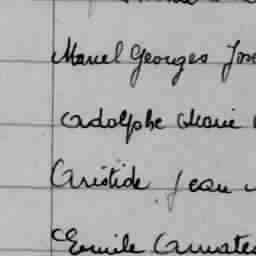 Marcel Georges Jos
Adolphe Marie
Aristide Jean
Emile